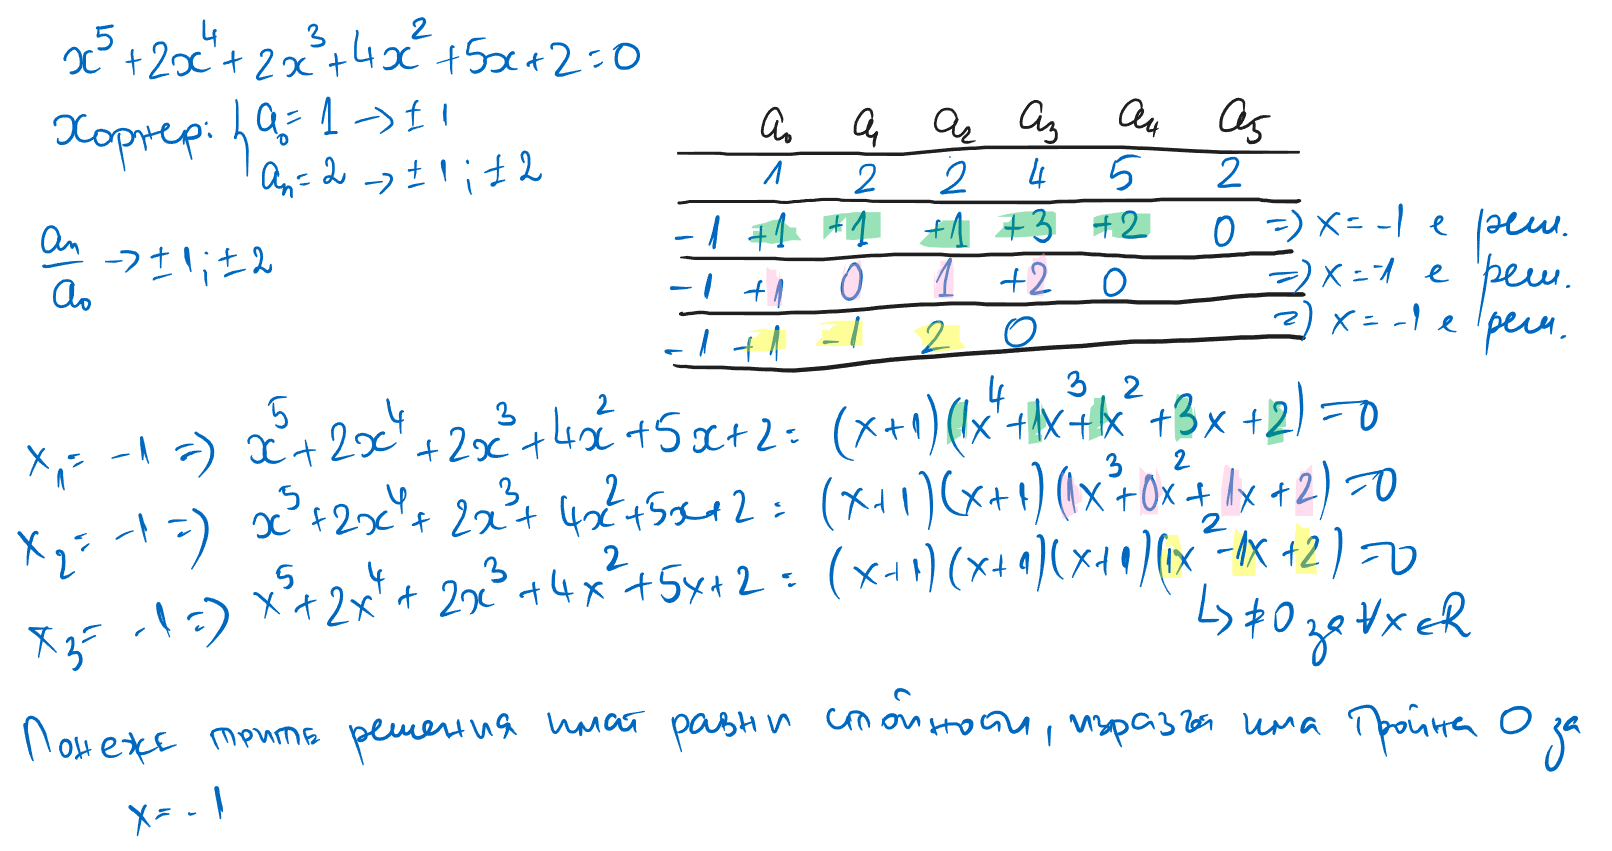 x⁵+2x⁴+2x³+4x²+5x+2=0
Хорнер: { a₀=1 → ±1
aₙ=2 → ±1; ±2
aₙ/a₀ → ±1; ±2
a₀ a₁ a₂ a₃ a₄ a₅
1 2 2 4 5 2
-1 +1 +1 +1 +3 +2 0 => x=-1 е реш.
-1 +1 0 1 +2 0 => x=-1 е реш.
-1 +1 -1 2 0 => x=-1 е реш.
x₁=-1 => x⁵+2x⁴+2x³+4x²+5x+2=(x+1)(1x⁴+1x³+1x²+3x+2)=0
x₂=-1 => x⁵+2x⁴+2x³+4x²+5x+2=(x+1)(x+1)(1x³+0x²+1x+2)=0
x₃=-1 => x⁵+2x⁴+2x³+4x²+5x+2=(x+1)(x+1)(x+1)(1x²-1x+2)=0
↳ ≠0 за ∀x∈R
Понеже трите решения имат равни стойности, изразът има тройна 0 за
x=-1